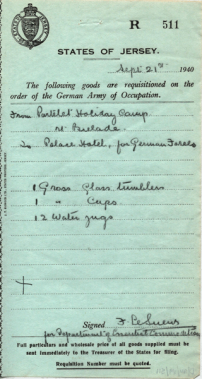 R 511
STATES OF JERSEY.
Sept 21st 1940
The following goods are requisitioned on the
order of the German Army of Occupation.
From Portelet Holiday Camp
St Brelade.
To Palace Hotel, for German Forces
1 Gross Glass tumblers
1 " Cups.
12 Water jugs
Signed F. Le Sueur
for Department of Essential Commodities
Full particulars and wholesale price of all goods supplied must be
sent immediately to the Treasurer of the States for filing.
Requisition Number must be quoted.